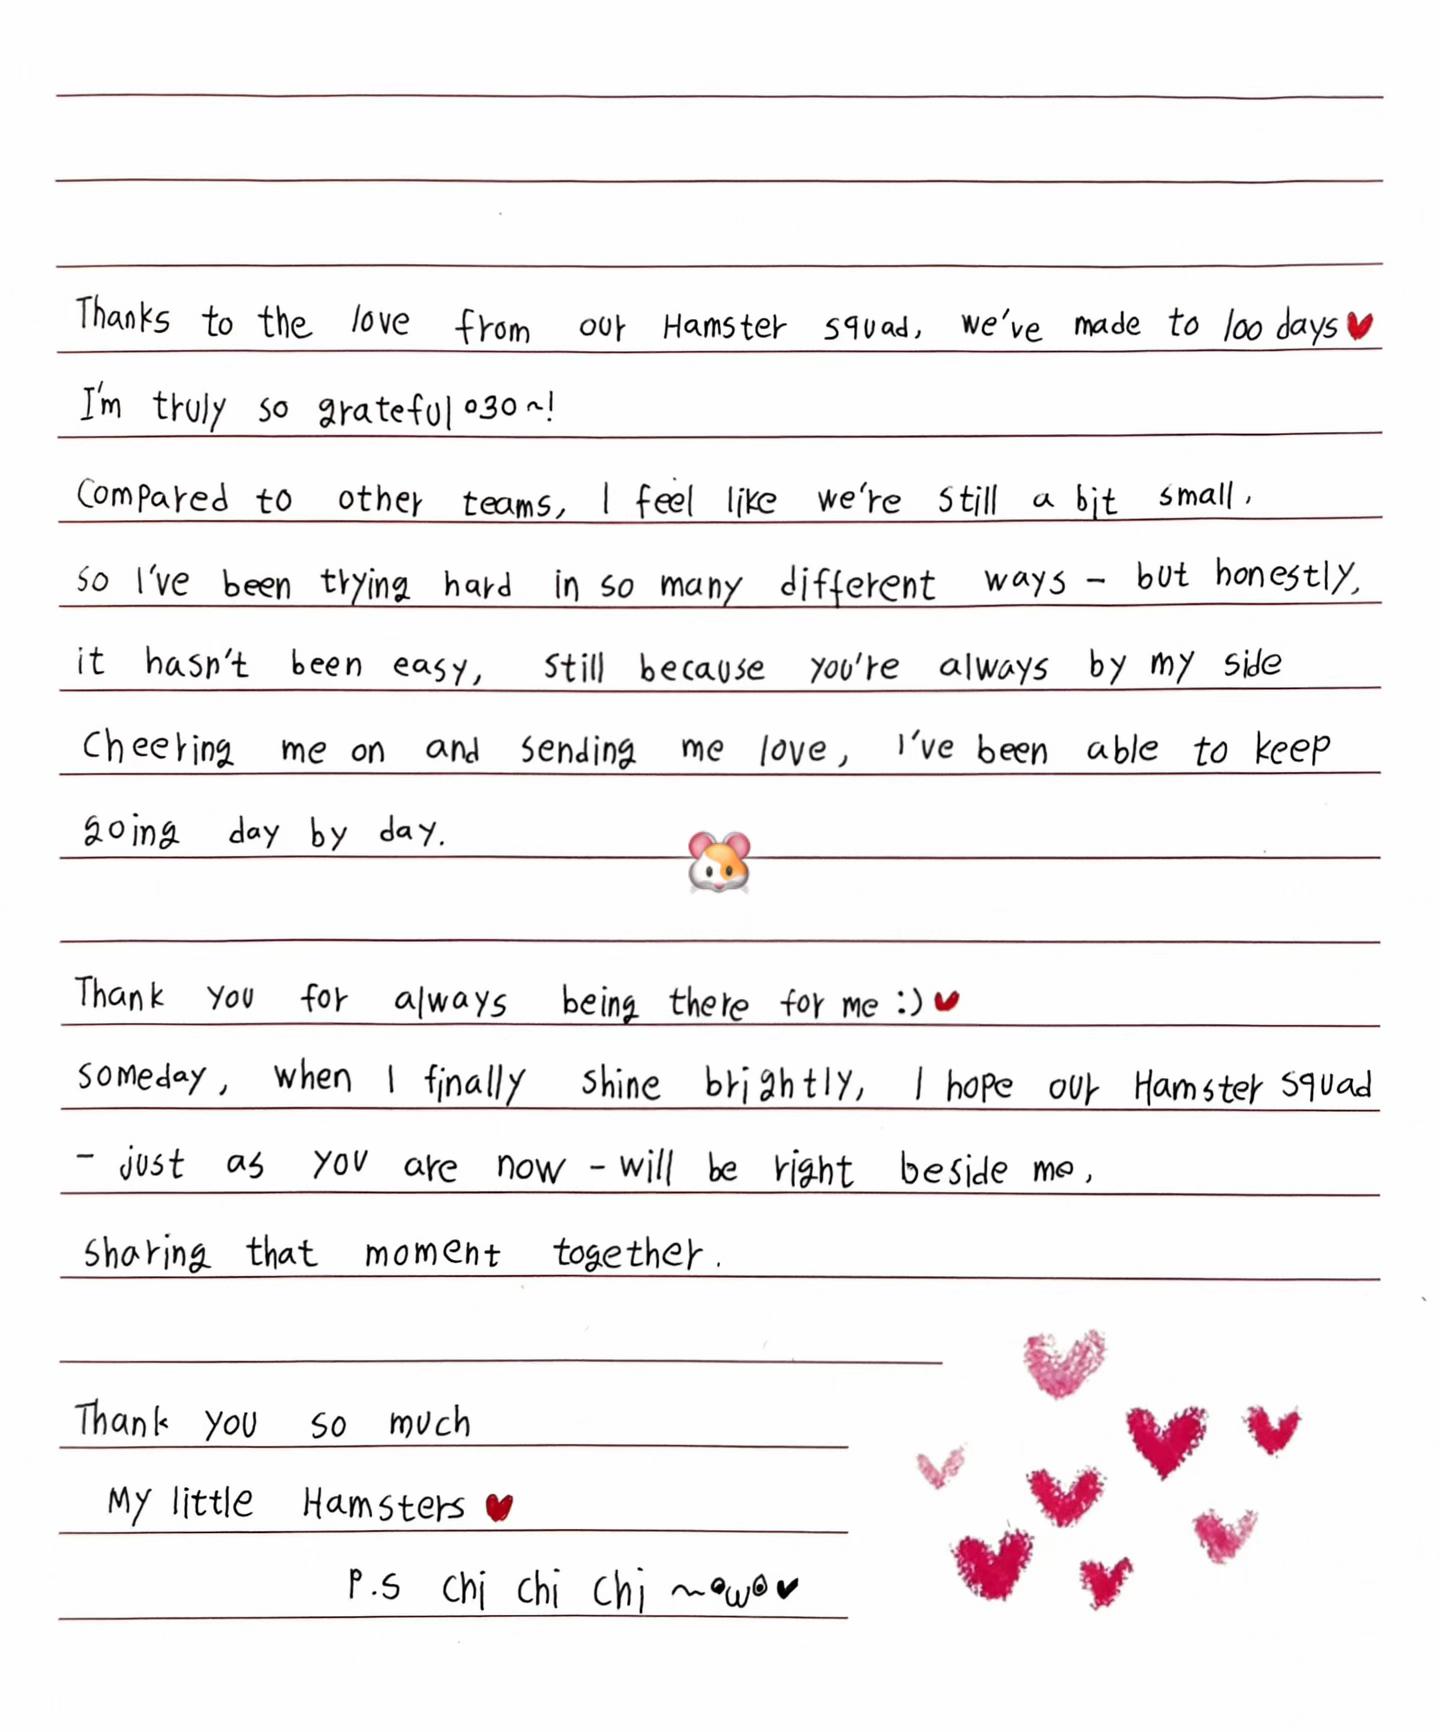 Thanks to the love from our Hamster squad, we've made to 100 days♥
I'm truly so grateful o3o~!
Compared to other teams, I feel like we're still a bit small.
so I've been trying hard in so many different ways - but honestly,
it hasn't been easy, still because you're always by my side
Cheering me on and sending me love, I've been able to keep
going day by day.
Thank you for always being there for me :)♥
someday, when I finally shine brightly, I hope our Hamster squad
- just as you are now - will be right beside me,
sharing that moment together.
Thank you so much
My little Hamsters♥
P.S chi chi chi ~owo♥